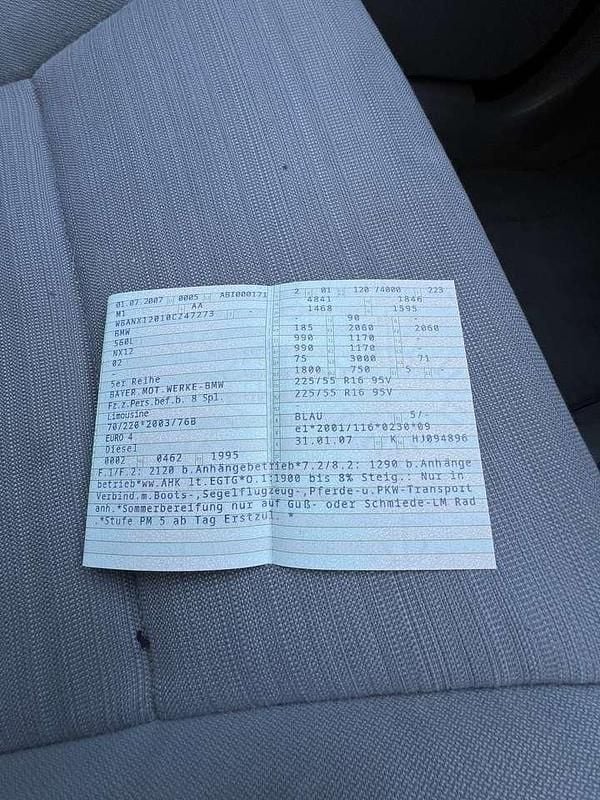 01.07.2007 0005 ABI000171
M1 AA
WBANX12010CZ47273 -
BMW
560L
NX12
02
5er Reihe
BAYER.MOT.WERKE-BMW
Fz.z.Pers.bef.b. 8 Spl.
Limousine
70/220*2003/76B
EURO 4
Diesel
0002 0462 1995
2 01 120 /4000 223
4841 1846
1468 1595
- 90 -
185 2060 2060
990 1170 -
990 1170 -
75 3000 71
1800 750 5 -
225/55 R16 95V
225/55 R16 95V
BLAU 5/-
e1*2001/116*0230*09
31.01.07 K HJ094896
F.1/F.2: 2120 b.Anhängebetrieb*7.2/8.2: 1290 b.Anhänge
betrieb*ww.AHK lt.EGTG*O.1:1900 bis 8% Steig.: Nur in
Verbind.m.Boots-,Segelflugzeug-,Pferde-u.PKW-Transport
anh.*Sommerbereifung nur auf Guß- oder Schmiede-LM Rad
.*Stufe PM 5 ab Tag Erstzul. *